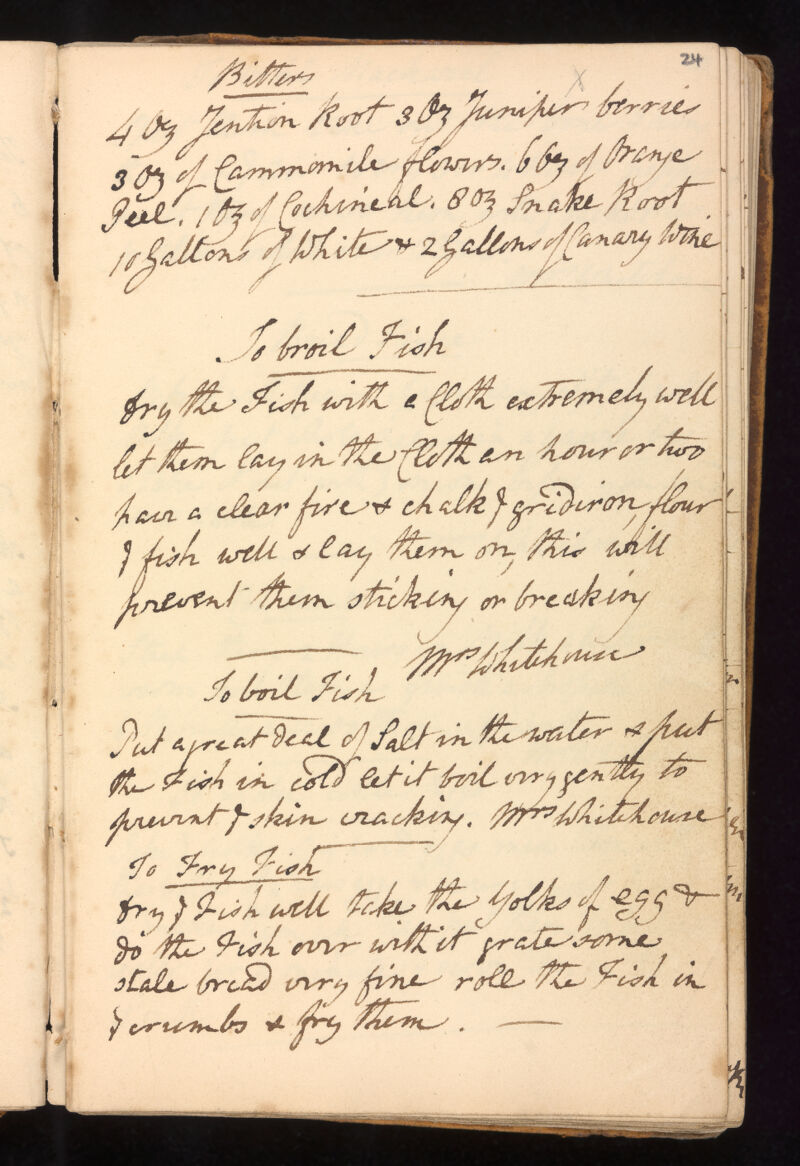 24
Bitters
4 Oz Jention Root 3 Oz Juniper berries
3 Oz of Cammomile flowers. 6 Oz of Oranje
Peel. 1 Oz of Cochineal. 8 Oz Snake Root
10 Gallons of White & 2 Gallons of Canary Wine
To broil Fish
dry the Fish with a Cloth extremely well
let them lay in the Cloth an hour or two
have a clear fire & chalk ye gridiron, flour
ye fish well & lay them on, this will
prevent them sticking or breaking
Mrs Whitehouse
To boil Fish
Put a great deal of Salt in the water & put
the Fish in cold let it boil very gently to
prevent ye skin cracking. Mrs Whitehouse
To Fry Fish
dry ye Fish well take the Yolks of egg &
do the Fish over with it grate some
stale bread very fine roll the Fish in
ye crumbs & fry them.